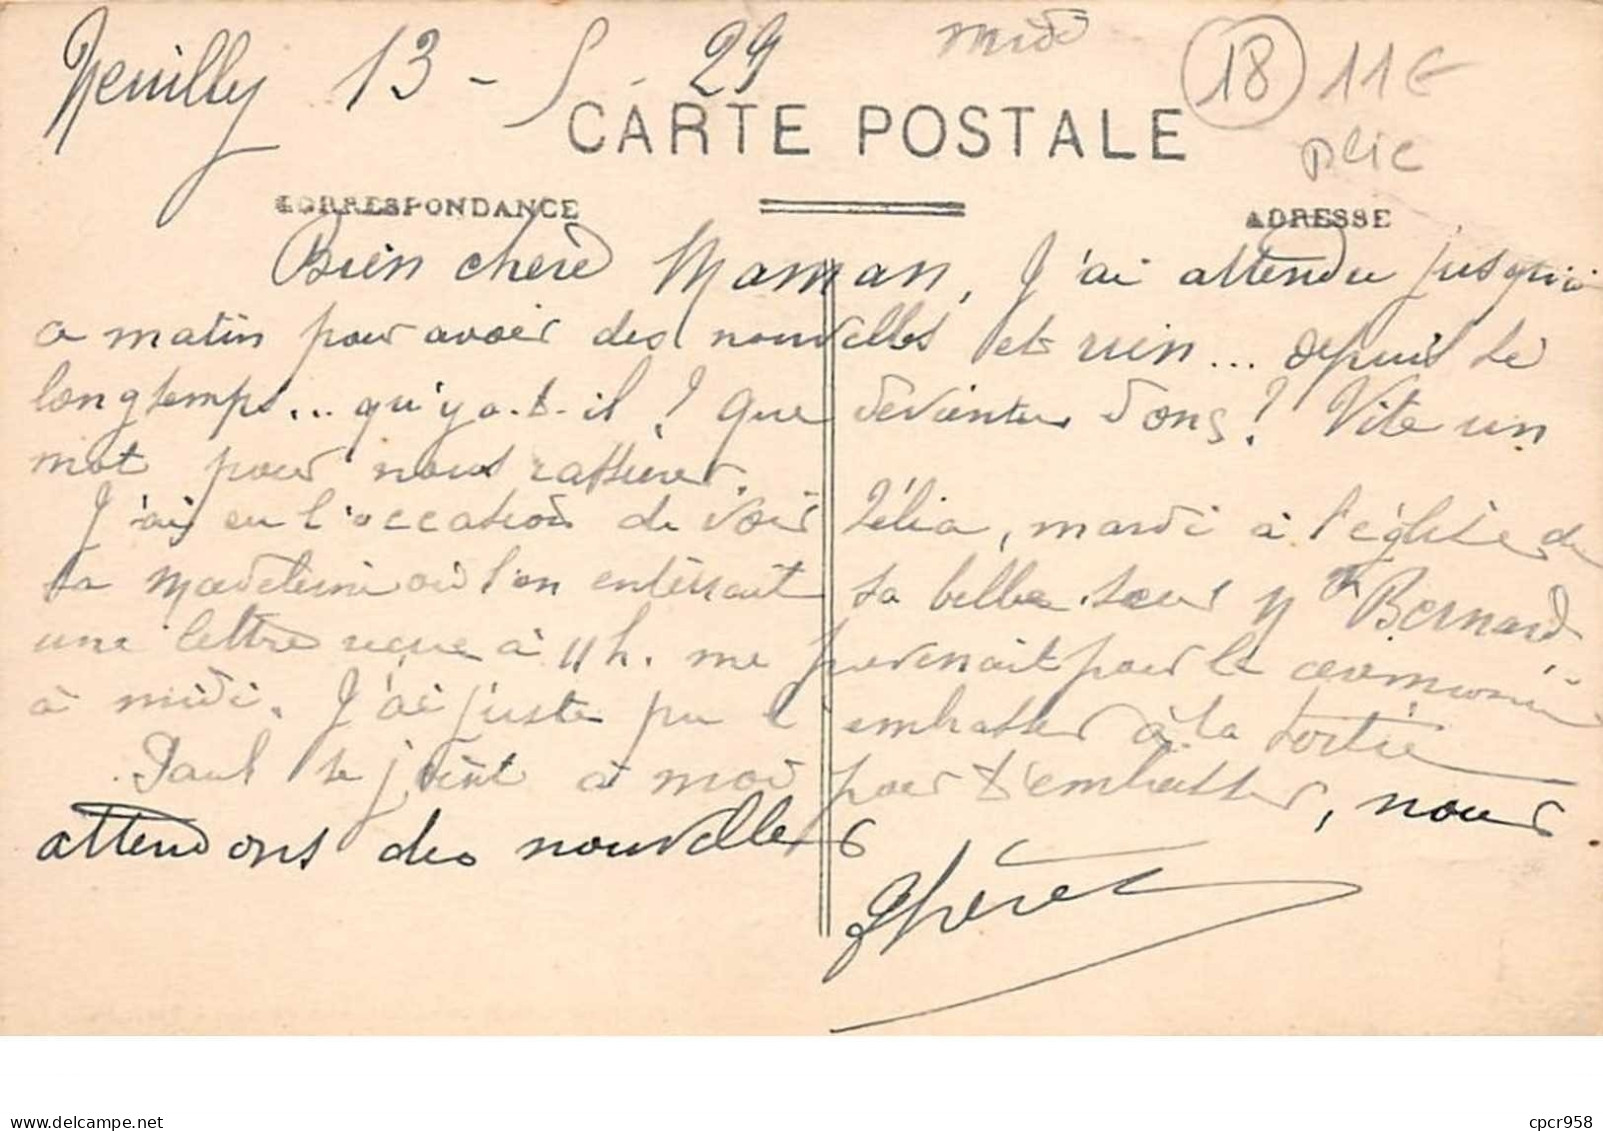 Neuilly 13 - 5 - 29
midi
18
11€
plic
CARTE POSTALE
CORRESPONDANCE
ADRESSE
Bien chère Maman, J'ai attendu jusqu'à
ce matin pour avoir des nouvelles et rien... depuis si
longtemps... qu'y a-t-il ? Que devient donc ? Vite un
mot pour nous rassurer.
J'ai eu l'occasion de voir Zélia, mardi à l'église de
la Madeleine où l'on enterrait sa belle-sœur Bernard
une lettre reçue à 11h. me prévenait pour la cérémonie
à midi. J'ai juste pu l'embrasser à la sortie
Paul se joint à moi pour t'embrasser, nous
attendons des nouvelles
Thérèse
cpcr958